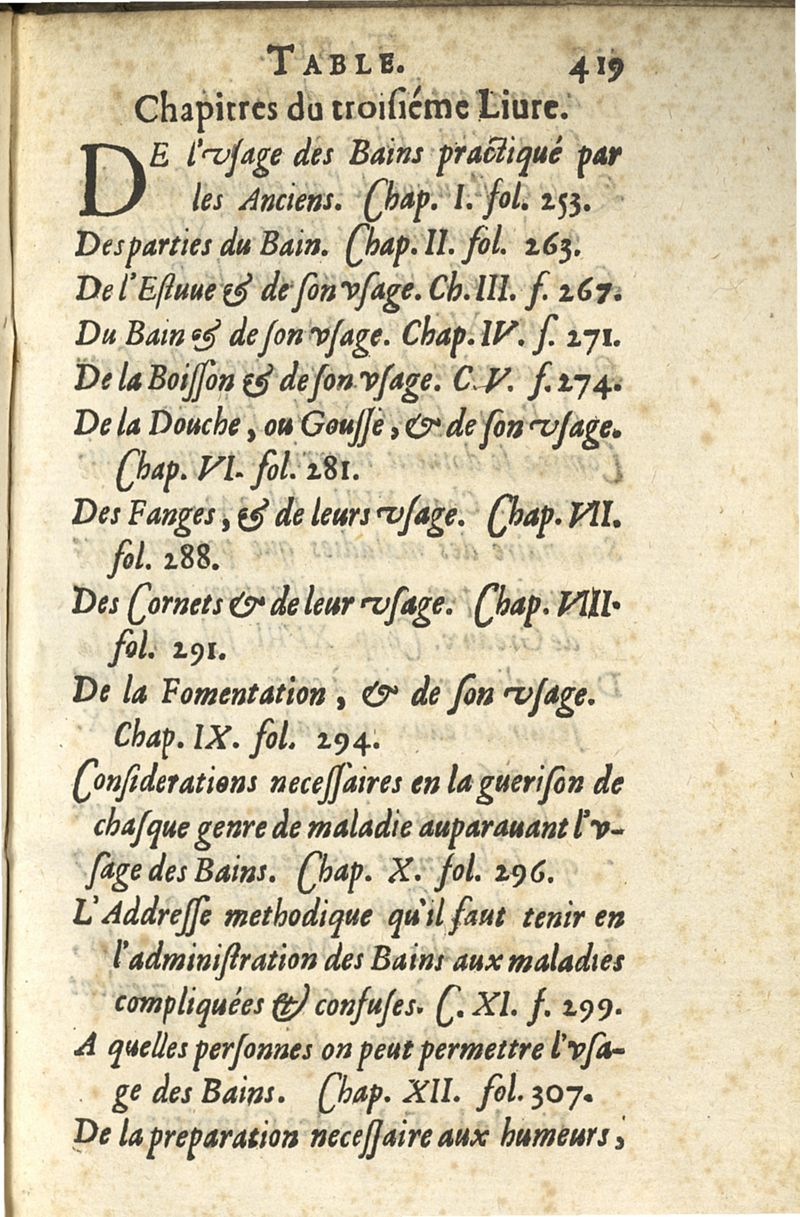 TABLE. 419
Chapitres du troisiéme Liure.
DE l'vsage des Bains practiqué par
les Anciens. Chap. I. fol. 253.
Des parties du Bain. Chap. II. fol. 263.
De l'Estuue & de son vsage. Ch. III. f. 267.
Du Bain & de son vsage. Chap. IV. f. 271.
De la Boisson & de son vsage. C. V. f. 274.
De la Douche, ou Gousse, & de son vsage.
Chap. VI. fol. 281.
Des Fanges, & de leurs vsage. Chap. VII.
fol. 288.
Des Cornets & de leur vsage. Chap. VIII.
fol. 291.
De la Fomentation, & de son vsage.
Chap. IX. fol. 294.
Considerations necessaires en la guerison de
chasque genre de maladie auparauant l'v-
sage des Bains. Chap. X. fol. 296.
L'Addresse methodique qu'il faut tenir en
l'administration des Bains aux maladies
compliquées & confuses. C. XI. f. 299.
A quelles personnes on peut permettre l'vsa-
ge des Bains. Chap. XII. fol. 307.
De la preparation necessaire aux humeurs,